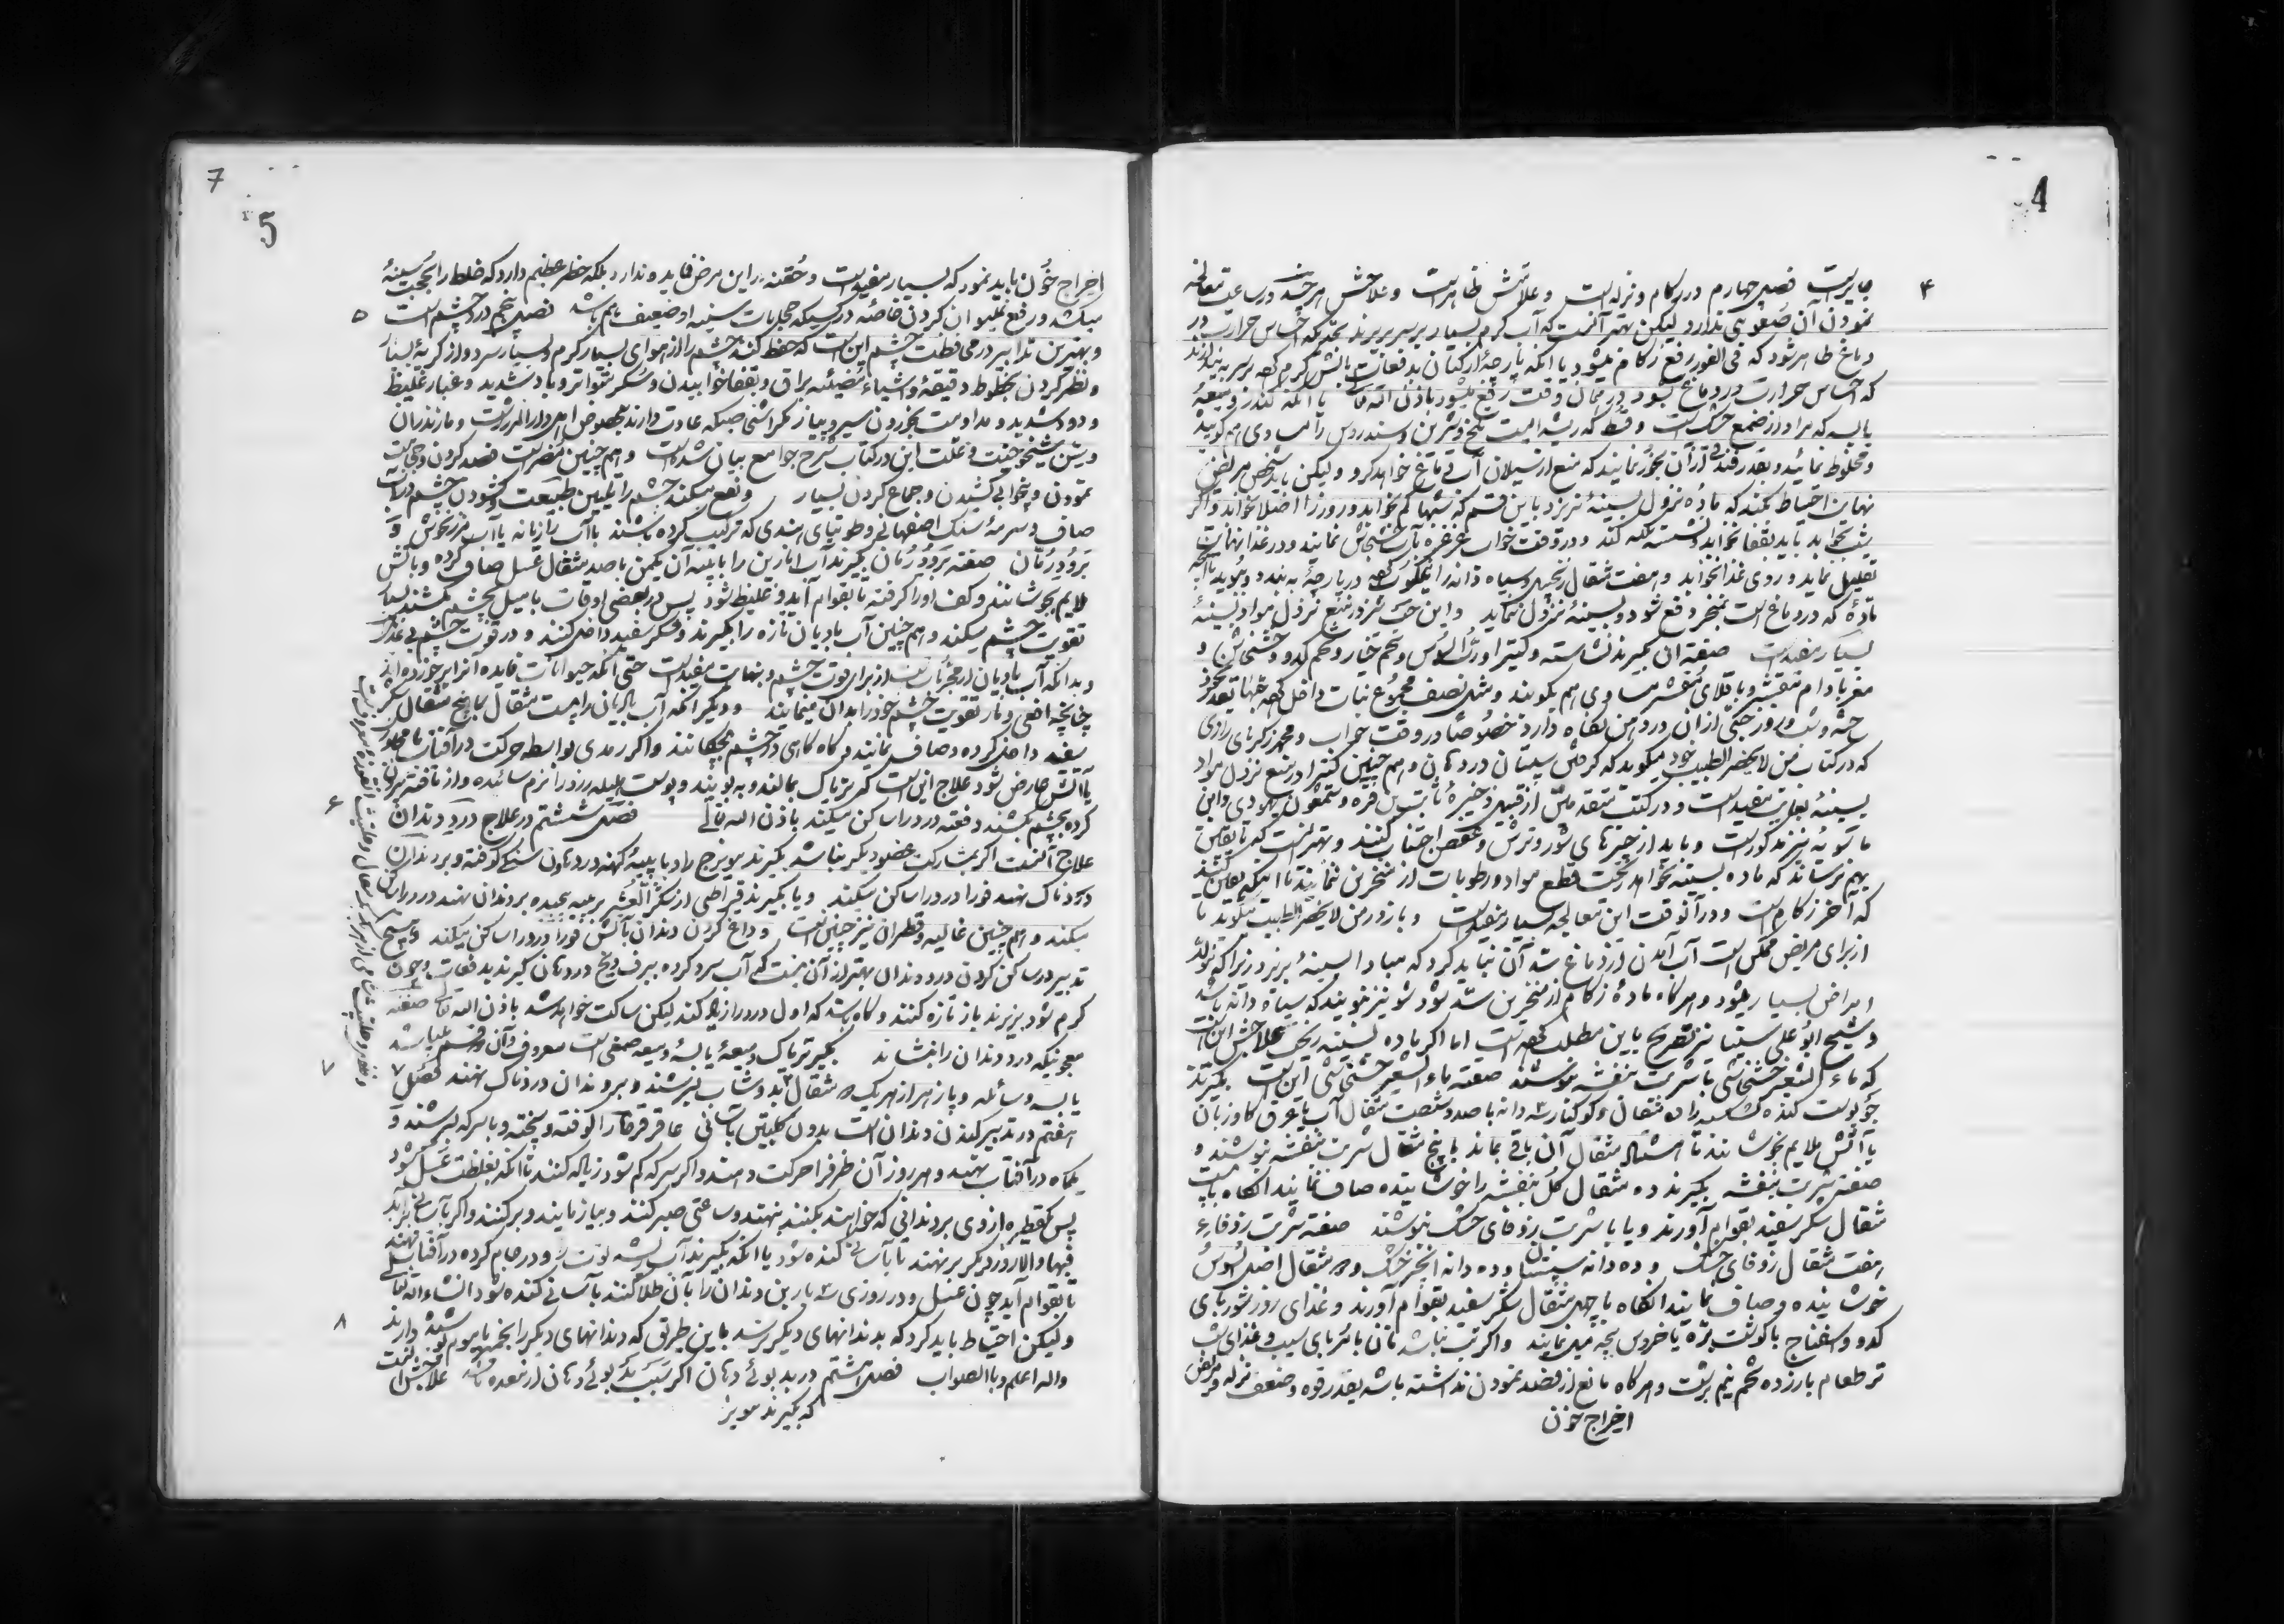 4
۴
جایز است فصل چهارم در زکام و نزله است و علامتش ظاهر است و علاجش هر چند در ساعت معالجه
نمودن آن صعوبتی ندارد و لیکن بهتر آنست که آب گرم بسیار بر سر بریزند بحدیکه احساس حرارت در
دماغ ظاهر شود که فی الفور رفع زکام میشود یا آنکه پارچۀ از کتان بدفعات بآتش گرم کرده بر سر بیندازند
که احساس حرارت در دماغ بشود در همان وقت رفع میشود باذن الله تعالی یا آنکه کندر و میعۀ
یابسه که مراد از صمغ خشک است و قسط که ریشه ایست تلخ و شیرین و سندروس را مساوی هم کوبیده
و مخلوط نمایند و بقدر فندقی از آن بخور نمایند که منع از سیلان آب دماغ خواهد کرد و لیکن باید شخص مریض
نهایت احتیاط بکند که ماده نزول بسینه نریزد باین قسم که شبها کم بخوابد و روز را اصلا نخوابد و اگر
شب بخوابد باید بقفا نخوابد و نشسته تکیه کند و در وقت خواب غرغره بآب خشخاش نمایند و در غذا نهایت
تقلیل نماید و روی غذا نخوابد و هفت مثقال زنجبیل و سیاه دانه را نیمکوب کرده در پارچۀ به بندد و ببوید تا آنکه
مادۀ که در دماغ است بمنخر دفع شود و بسینه نزول ننماید و این حب نیز در منع نزول مواد بسینه
بسیار مفید است صفت آن بگیرند نشاسته و کتیرا و رب السوس و تخم خیار و تخم کدو و خشخاش و
مغز بادام مقشر و باقلای مقشر مساوی هم بکوبند و مثل نصف مجموع نبات داخل کرده حبها بقدر نخود
حبه و شب و روز حبی از آن در دهن نگاه دارد خصوصا در وقت خواب و محمد زکریای رازی
که در کتاب من لا یحضر الطبیب خود میگوید که گرفتن سپستان در دهان و هم چنین کتیرا در منع نزول مواد
بسینه بغایت مفید است و در کتب متقدمین از قبیل ذخیرۀ ثابت بن قره و شمعون یهودی و ابن
ماسویه نیز مذکور است و باید از چیزهای شور و ترش و عفص اجتناب کنند و بهتر آنست که تا یقین
بهم نرساند که ماده بسینه نخواهد ریخت قطع مواد و رطوبات از منخرین ننمایند تا اینکه یقین کنند
که آخر زکام است و در آنوقت این معالجه بسیار مفید است و باز در من لا یحضر الطبیب میگوید تا
از برای مریض ممکن است آب آمدن از دماغ سد آن نباید کرد که مبادا بسینه بریزد زیرا که تولد
امراض بسیار میشود و هر گاه مادۀ زکام از منخرین سد شود شونیز ببویند که سیاه دانه باشد
و شیخ ابو علی سینا نیز تصریح باین مطلب کرده است اما اگر ماده بسینه ریخت علاجش این است
که ماء الشعیر خشخاشی با شربت بنفشه بنوشند صفت ماء الشعیر خشخاشی این است بگیرند
جو پوست کنده ده مثقال و کوکنار سه دانه با صد و شصت مثقال آب یا عرق گاو زبان
با آتش ملایم بجوشانند تا مثقال آن باقی بماند با پنج مثقال شربت بنفشه بنوشند و
صفت شربت بنفشه بگیرند ده مثقال گل بنفشه را جوشانیده صاف نمایند آنگاه با بیست
مثقال شکر سفید بقوام آورند و یا با شربت زوفای خشک بنوشند صفت شربت زوفاء
هفت مثقال زوفای خشک و ده دانه سپستان و ده دانه انجیر خشک و ۵ مثقال اصل السوس
جوشانیده و صاف نمایند آنگاه با چهل مثقال شکر سفید بقوام آورند و غذای روز شوربای
کدو و اسفناج با گوشت بره یا خروس بچه میل نمایند و اگر تب نباشد نان با مربای سیب و غذای شب
تر طعام با زرده تخم نیم برشت و هر گاه مانع از فصد نمودن نداشته باشد بقدر قوه و ضعف نزله و مریض
اخراج خون
7
5
اخراج خون باید نمود که بسیار مفید است و حقنه در این مرض فایده ندارد بلکه خطر عظیم دارد که خلط را بجنب سینه
۵
میکشد و رفع نمیتوان کردن خاصه در کسیکه حجابات سینه او ضعیف باشد فصل پنجم در درد چشم است
و بهترین تدابیر در محافظت چشم این است که حفظ کنند چشم را از هوای بسیار گرم و بسیار سرد و از گریه بسیار
و نظر کردن بخطوط دقیقه و اشیاء مضیئه براق و بقفا خوابیدن و سکر متواتر و باد شدید و غبار غلیظ
و دود شدید و مداومت بخوردن سیر و پیاز مگر اشخاصیکه عادت دارند بخصوص اهل دار المرز رشت و مازندران
و سن شیخوخیت و علت این در کتاب شرح جوامع بیان شده است و هم چنین مضر است فصد کردن و حجامت
نمودن و بیخوابی کشیدن و جماع کردن بسیار و نفع میکند چشم را تلیین طبیعت و گشودن چشم در آب
صاف و سرمۀ سنگ اصفهانی و طوتیای هندی که ترکیب کرده باشند با آب رازیانه یا آب مرزنجوش و
برود رمان صفت برود رمان بگیرند آب انارین را با پیه آن یکمن با صد مثقال عسل صاف کرده و بآتش
ملایم بجوشانند و کف او را گرفته تا بقوام آید و غلیظ شود پس در بعضی اوقات با میل بچشم بکشند بسیار
تقویت چشم میکند و هم چنین آب بادیان تازه را بگیرند و شکر سفید داخل کنند و در قوت چشم بی عدیل
و بدانکه آب بادیان از مجربات است از برای قوت چشم و بنهایت مفید است حتی آنکه حیوانات فایده آنرا برخورده اند
چنانچه افعی و مار تقویت چشم خود را بدان مینمایند و دیگر آنکه آب بادیان را بیست مثقال با پنج مثقال شکر
سفید داخل کرده و صاف نمایند و گاه گاهی در چشم بچکانند و اگر رمدی بواسطه حرکت در آفتاب یا مجاورت
با آتش عارض شود علاج این است که تریاک بمالند و ببویند و پوست هلیله زرد را نرم سائیده و از بافته بیرون
۶
کرده بچشم بکشند دفعته درد را ساکن میکند باذن الله تعالی فصل ششم در علاج درد دندان
علاج آنست اگر بمشارکت عضو دیگر نباشد بگیرند مویزج را و با پیۀ کهنه در هاون سنگی کوفته و بر دندان
دردناک نهند فورا درد را ساکن میکند و یا بگیرند قیراطی از شکر العشر بر پنبه پیچیده بر دندان نهند درد را ساکن
میکند و هم چنین غالیه و قطران نیز چنین است و داغ کردن دندان بآتش فورا درد را ساکن میکند و هیچ
تدبیر در ساکن کردن درد دندان بهتر از آن نیست که آب سرد کرده ببرف و یخ در دهان گیرند بدفعات و چون
گرم شود بریزند باز تازه کنند و گاه باشد که اول درد را زیاد کند لیکن ساکت خواهد شد باذن الله تعالی صفت
معجونیکه درد دندان را بنشاند بگیر تریاک و میعۀ یابسه و میعه صمغی است معروف و آن دو قسم میباشد
۷
یابسه و سائله و پازهر از هر یک ۵ مثقال بدوشاب بسرشند و بر دندان دردناک نهند فصل ۷
هفتم در تدبیر کندن دندان است بدون کلبتین بآسانی عاقر قرحا را کوفته و پخته و با سرکه بسرشند و
یکماه در آفتاب نهند و هر روز آن ظرف را حرکت دهند و اگر سرکه کم شود زیاد کنند تا آنکه بغلظت عسل شود
پس قطره از وی بر دندانی که خواهند بکنند بنهند و ساعتی صبر کنند و بیازمایند و برکنند و اگر بآسانی برآید
فبها و الا روز دیگر بر نهند تا بآسانی کنده شود یا آنکه بگیرند آب ریشه توت را و در جام کرده در آفتاب نهند
تا بقوام آید چون عسل و در روزی سه بار بن دندان را بآن طلا کنند بآسانی کنده شود انشاء الله تعالی
۸
و لیکن احتیاط باید کرد که بدندانهای دیگر نرسد باین طریق که دندانهای دیگر را بخمیر یا موم پوشیده دارند
والله اعلم و بالصواب فصل هشتم در بد بوئی دهان اگر سبب بد بوئی دهان از معده باشد علاجش آنست
که بگیرند مویز